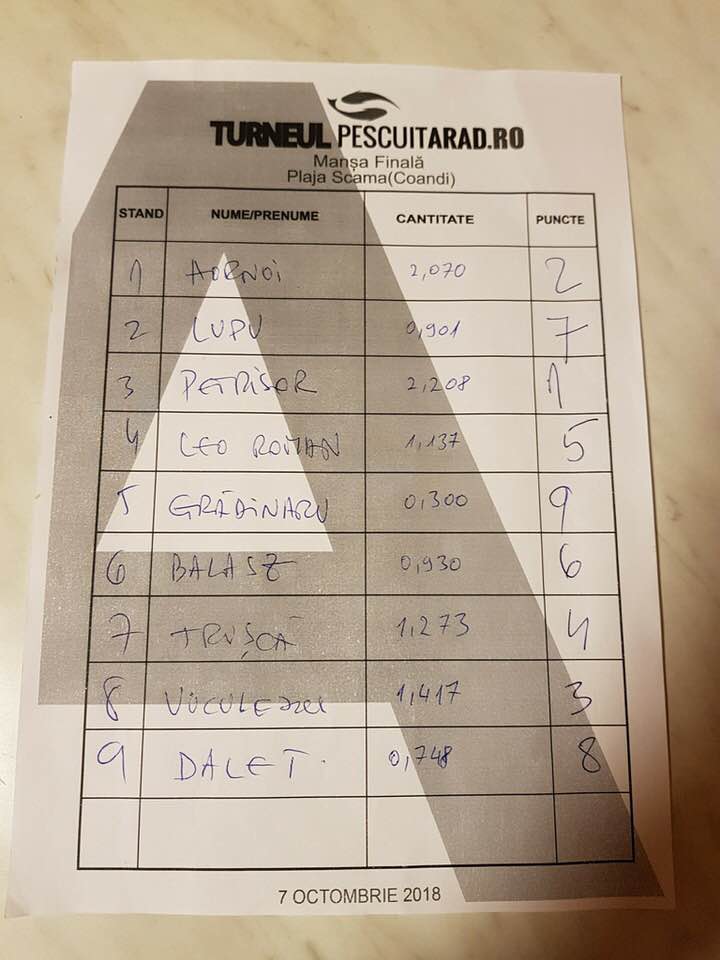 TURNEUL PESCUITARAD.RO
Manșa Finală
Plaja Scama(Coandi)
STAND NUME/PRENUME CANTITATE PUNCTE
1 AORNOi 2,070 2
2 LUPU 0,901 7
3 PETRiSOR 2,208 1
4 LEO ROMAN 1,137 5
5 GRĂDiNARU 0,300 9
6 BALASZ 0,930 6
7 TRUȘCĂ 1,273 4
8 1,417 3
9 DALET 0,748 8
7 OCTOMBRIE 2018